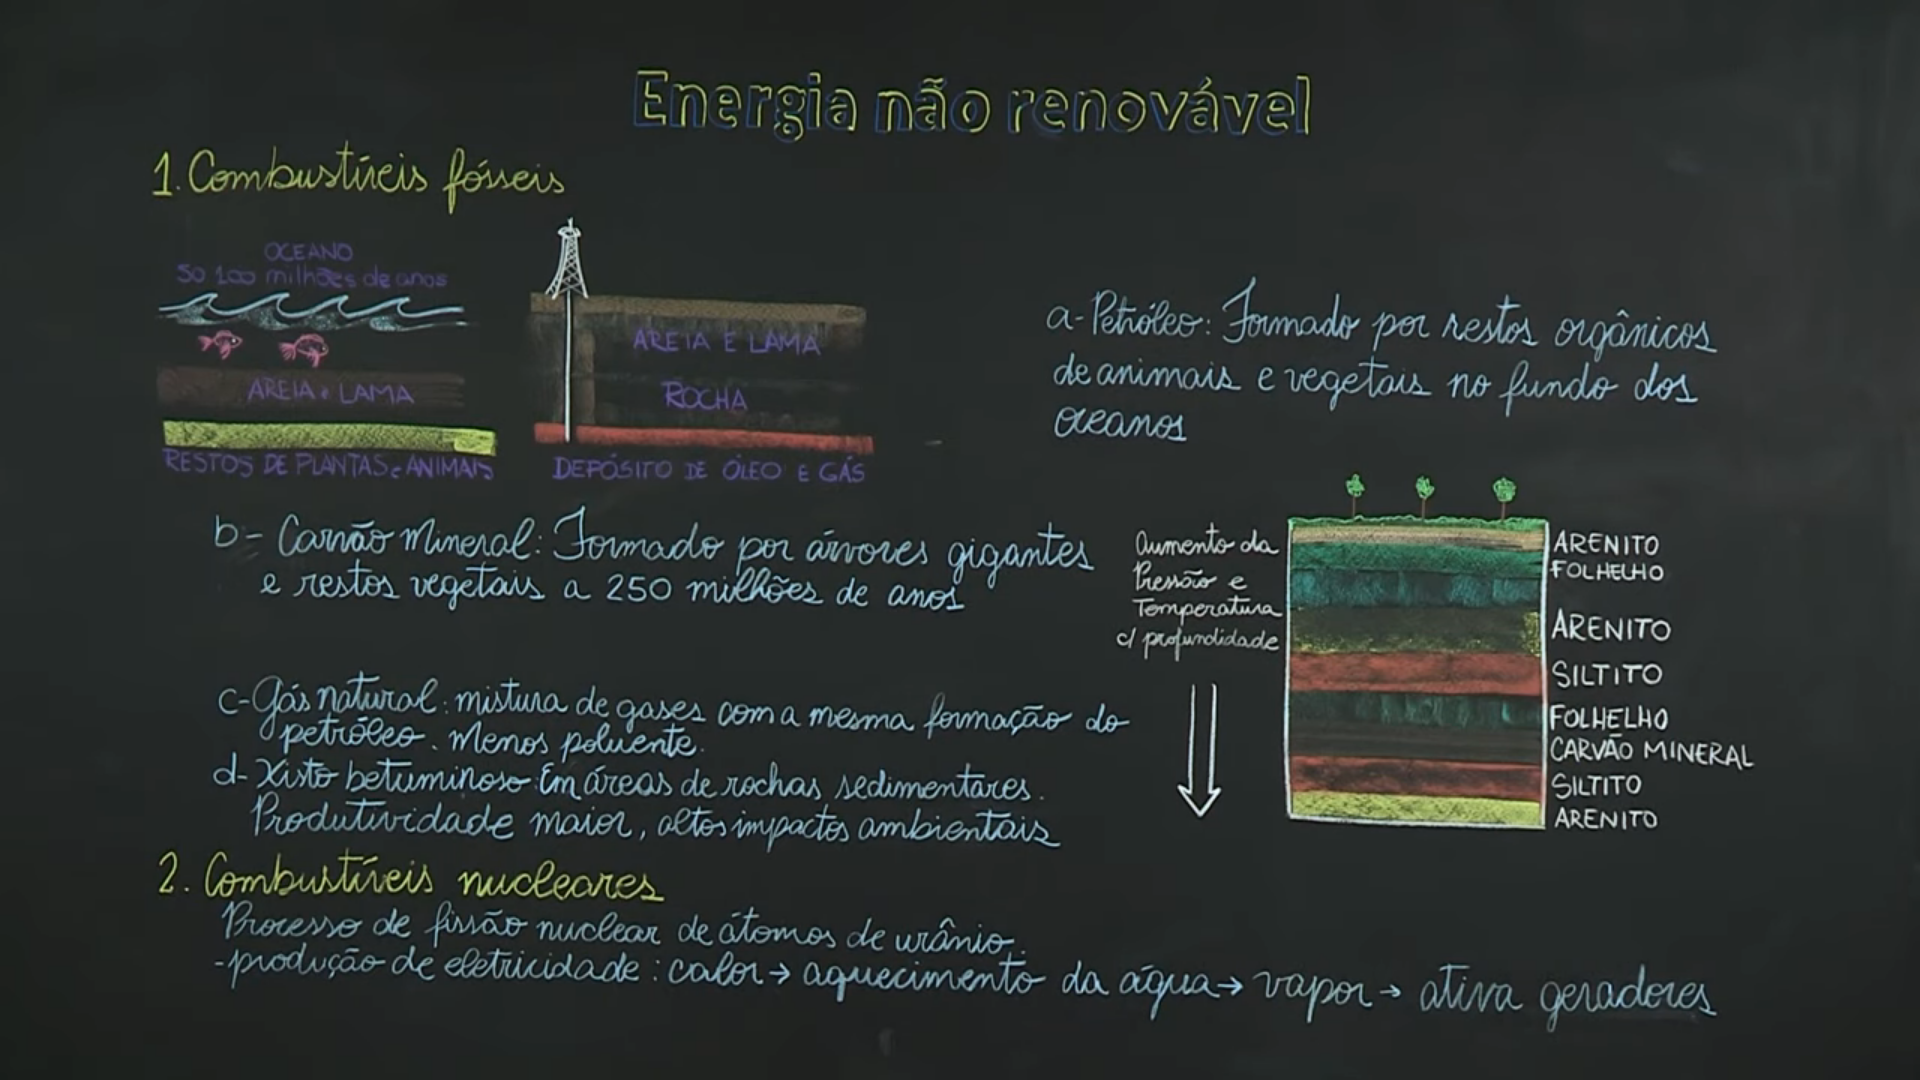 Energia não renovável
1. Combustíveis fósseis
OCEANO
50 100 milhões de anos
AREIA e LAMA
RESTOS DE PLANTAS e ANIMAIS
AREIA E LAMA
ROCHA
DEPÓSITO DE ÓLEO E GÁS
a- Petróleo: Formado por restos orgânicos
de animais e vegetais no fundo dos
oceanos
b- Carvão Mineral: Formado por árvores gigantes
e restos vegetais a 250 milhões de anos
Aumento da
Pressão e
Temperatura
c/ profundidade
ARENITO
FOLHELHO
ARENITO
SILTITO
FOLHELHO
CARVÃO MINERAL
SILTITO
ARENITO
c- Gás natural: mistura de gases com a mesma formação do
petróleo. Menos poluente.
d- Xisto betuminoso: Em áreas de rochas sedimentares.
Produtividade maior, altos impactos ambientais
2. Combustíveis nucleares
Processo de fissão nuclear de átomos de urânio.
-produção de eletricidade: calor → aquecimento da água → vapor → ativa geradores